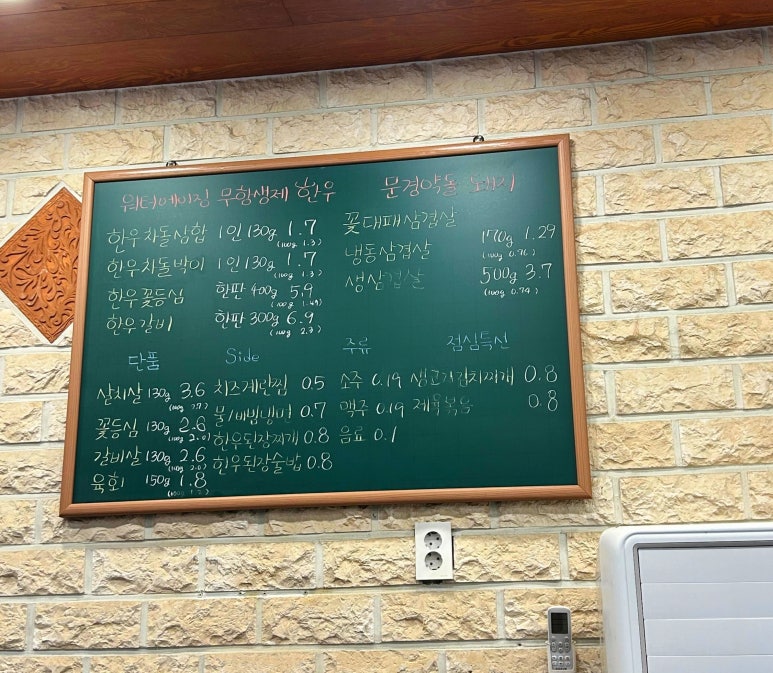 워터에이징 무항생제 한우
한우차돌삼합 1인 130g 1.7
(100g 1.3)
한우차돌박이 1인 130g 1.7
(100g 1.3)
한우꽃등심 한판 400g 5.9
(100g 1.49)
한우갈비 한판 300g 6.9
(100g 2.3)
문경약돌 돼지
꽃대패삼겹살
냉동삼겹살 170g 1.29
(100g 0.76)
생삼겹살 500g 3.7
(100g 0.74)
단품
살치살 130g 3.6
(100g 2.7)
꽃등심 130g 2.6
(100g 2.0)
갈비살 130g 2.6
(100g 2.0)
육회 150g 1.8
Side
치즈계란찜 0.5
물/비빔냉면 0.7
한우된장찌개 0.8
한우된장술밥 0.8
주류
소주 0.19
맥주 0.19
음료 0.1
점심특선
생고기김치찌개 0.8
제육볶음 0.8